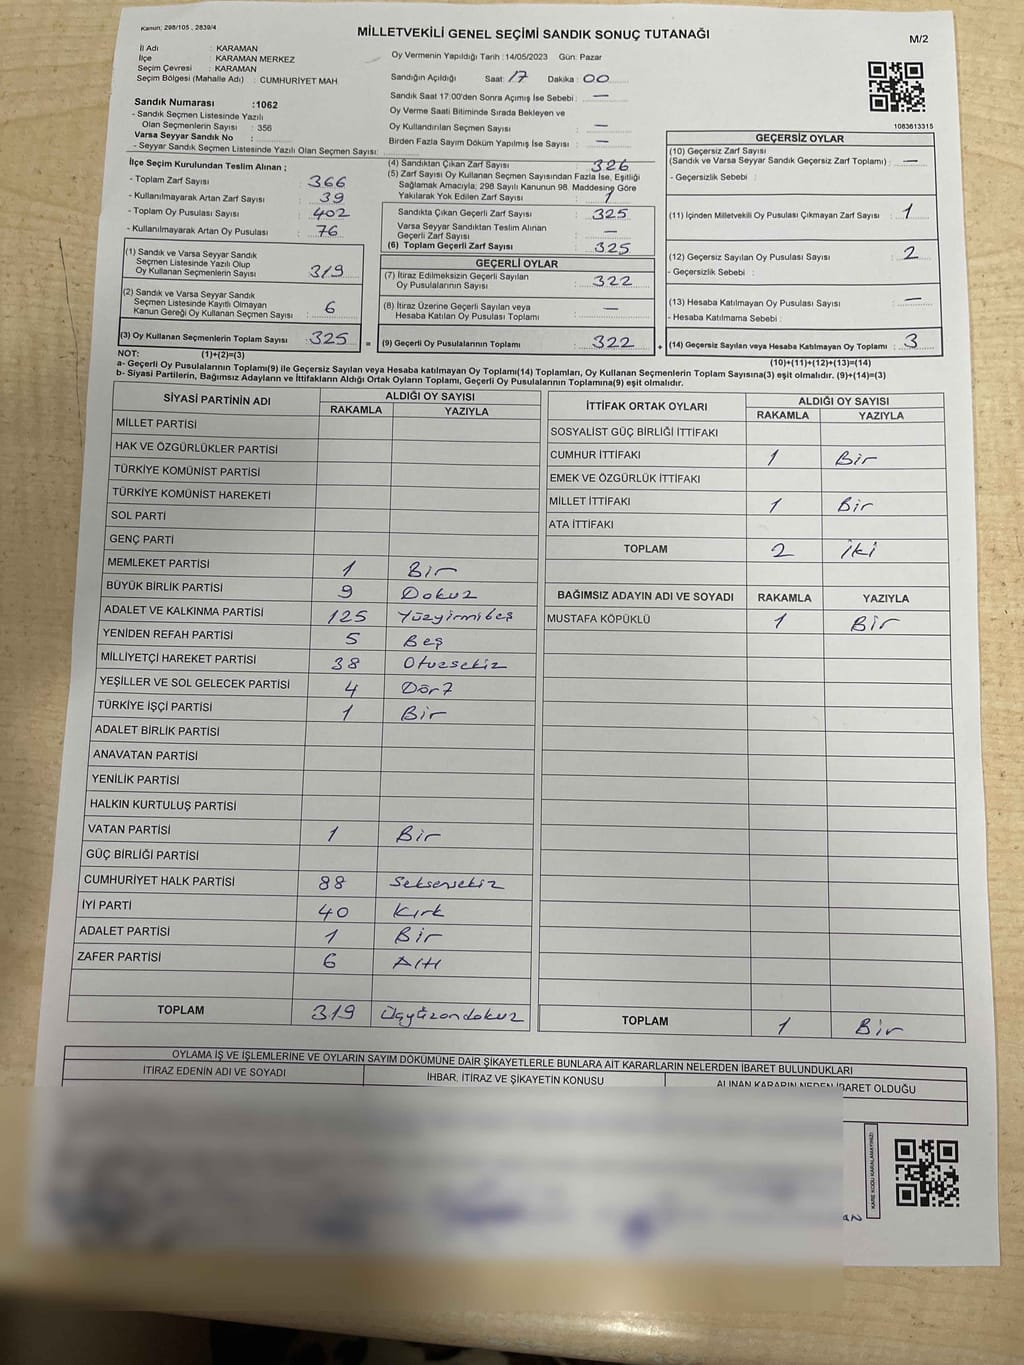 Kanun; 298/105 , 2839/4
MİLLETVEKİLİ GENEL SEÇİMİ SANDIK SONUÇ TUTANAĞI
M/2
İl Adı : KARAMAN
İlçe : KARAMAN MERKEZ
Seçim Çevresi : KARAMAN
Seçim Bölgesi (Mahalle Adı) : CUMHURİYET MAH
Sandık Numarası :1062
- Sandık Seçmen Listesinde Yazılı
Olan Seçmenlerin Sayısı : 356
Varsa Seyyar Sandık No :
- Seyyar Sandık Listesinde Yazılı Olan Seçmen Sayısı:
İlçe Seçim Kurulundan Teslim Alınan ;
- Toplam Zarf Sayısı 366
- Kullanılmayarak Artan Zarf Sayısı 39
- Toplam Oy Pusulası Sayısı 402
- Kullanılmayarak Artan Oy Pusulası 76
(1) Sandık ve Varsa Seyyar Sandık
Seçmen Listesinde Yazılı Olup
Oy Kullanan Seçmenlerin Sayısı 319
(2) Sandık ve Varsa Seyyar Sandık
Seçmen Listesinde Kayıtlı Olmayan
Kanun Gereği Oy Kullanan Seçmen Sayısı : 6
(3) Oy Kullanan Seçmenlerin Toplam Sayısı : 325 =
Oy Vermenin Yapıldığı Tarih :14/05/2023 Gün: Pazar
Sandığın Açıldığı Saat: 17 Dakika: 00
Sandık Saat 17:00'den Sonra Açımış İse Sebebi : —
Oy Verme Saati Bitiminde Sırada Bekleyen ve
Oy Kullandırılan Seçmen Sayısı : —
Birden Fazla Sayım Döküm Yapılmış İse Sayısı : —
(4) Sandıktan Çıkan Zarf Sayısı : 326
(5) Zarf Sayısı Oy Kullanan Seçmen Sayısından Fazla İse, Eşitliği
Sağlamak Amacıyla; 298 Sayılı Kanunun 98. Maddesine Göre
Yakılarak Yok Edilen Zarf Sayısı : 1
Sandıkta Çıkan Geçerli Zarf Sayısı : 325
Varsa Seyyar Sandıktan Teslim Alınan
Geçerli Zarf Sayısı : —
(6) Toplam Geçerli Zarf Sayısı : 325
GEÇERLİ OYLAR
(7) İtiraz Edilmeksizin Geçerli Sayılan
Oy Pusulalarının Sayısı : 322
(8) İtiraz Üzerine Geçerli Sayılan veya
Hesaba Katılan Oy Pusulası Toplamı : —
(9) Geçerli Oy Pusulalarının Toplamı : 322 +
1083613315
GEÇERSİZ OYLAR
(10) Geçersiz Zarf Sayısı
(Sandık ve Varsa Seyyar Sandık Geçersiz Zarf Toplamı) : —
- Geçersizlik Sebebi :
(11) İçinden Milletvekili Oy Pusulası Çıkmayan Zarf Sayısı : 1
(12) Geçersiz Sayılan Oy Pusulası Sayısı : 2
- Geçersizlik Sebebi :
(13) Hesaba Katılmayan Oy Pusulası Sayısı : —
- Hesaba Katılmama Sebebi :
(14) Geçersiz Sayılan veya Hesaba Katılmayan Oy Pusulası Toplamı : 3
NOT: (1)+(2)=(3)
(10)+(11)+(12)+(13)=(14)
a- Geçerli Oy Pusulalarının Toplamı(9) ile Geçersiz Sayılan veya Hesaba katılmayan Oy Toplamı(14) Toplamları, Oy Kullanan Seçmenlerin Toplam Sayısına(3) eşit olmalıdır. (9)+(14)=(3)
b- Siyasi Partilerin, Bağımsız Adayların ve İttifakların Aldığı Ortak Oyların Toplamı, Geçerli Oy Pusulalarının Toplamına(9) eşit olmalıdır.
SİYASİ PARTİNİN ADI ALDIĞI OY SAYISI
RAKAMLA YAZIYLA
MİLLET PARTİSİ
HAK VE ÖZGÜRLÜKLER PARTİSİ
TÜRKİYE KOMÜNİST PARTİSİ
TÜRKİYE KOMÜNİST HAREKETİ
SOL PARTİ
GENÇ PARTİ
MEMLEKET PARTİSİ 1 Bir
BÜYÜK BİRLİK PARTİSİ 9 Dokuz
ADALET VE KALKINMA PARTİSİ 125 Yüzyirmibeş
YENİDEN REFAH PARTİSİ 5 Beş
MİLLİYETÇİ HAREKET PARTİSİ 38 Otuzsekiz
YEŞİLLER VE SOL GELECEK PARTİSİ 4 Dört
TÜRKİYE İŞÇİ PARTİSİ 1 Bir
ADALET BİRLİK PARTİSİ
ANAVATAN PARTİSİ
YENİLİK PARTİSİ
HALKIN KURTULUŞ PARTİSİ
VATAN PARTİSİ 1 Bir
GÜÇ BİRLİĞİ PARTİSİ
CUMHURİYET HALK PARTİSİ 88 Seksensekiz
İYİ PARTİ 40 Kırk
ADALET PARTİSİ 1 Bir
ZAFER PARTİSİ 6 Altı
TOPLAM 319 Üçyüzondokuz
İTTİFAK ORTAK OYLARI ALDIĞI OY SAYISI
RAKAMLA YAZIYLA
SOSYALİST GÜÇ BİRLİĞİ İTTİFAKI
CUMHUR İTTİFAKI 1 Bir
EMEK VE ÖZGÜRLÜK İTTİFAKI
MİLLET İTTİFAKI 1 Bir
ATA İTTİFAKI
TOPLAM 2 İki
BAĞIMSIZ ADAYIN ADI VE SOYADI RAKAMLA YAZIYLA
MUSTAFA KÖPÜKLÜ 1 Bir
TOPLAM 1 Bir
OYLAMA İŞ VE İŞLEMLERİNE VE OYLARIN SAYIM DÖKÜMÜNE DAİR ŞİKAYETLERLE BUNLARA AİT KARARLARIN NELERDEN İBARET BULUNDUKLARI
İTİRAZ EDENİN ADI VE SOYADI İHBAR, İTİRAZ VE ŞİKAYETİN KONUSU ALINAN KARARIN NEDEN İBARET OLDUĞU
KARE KODU KARALAMAYINIZ!
AN